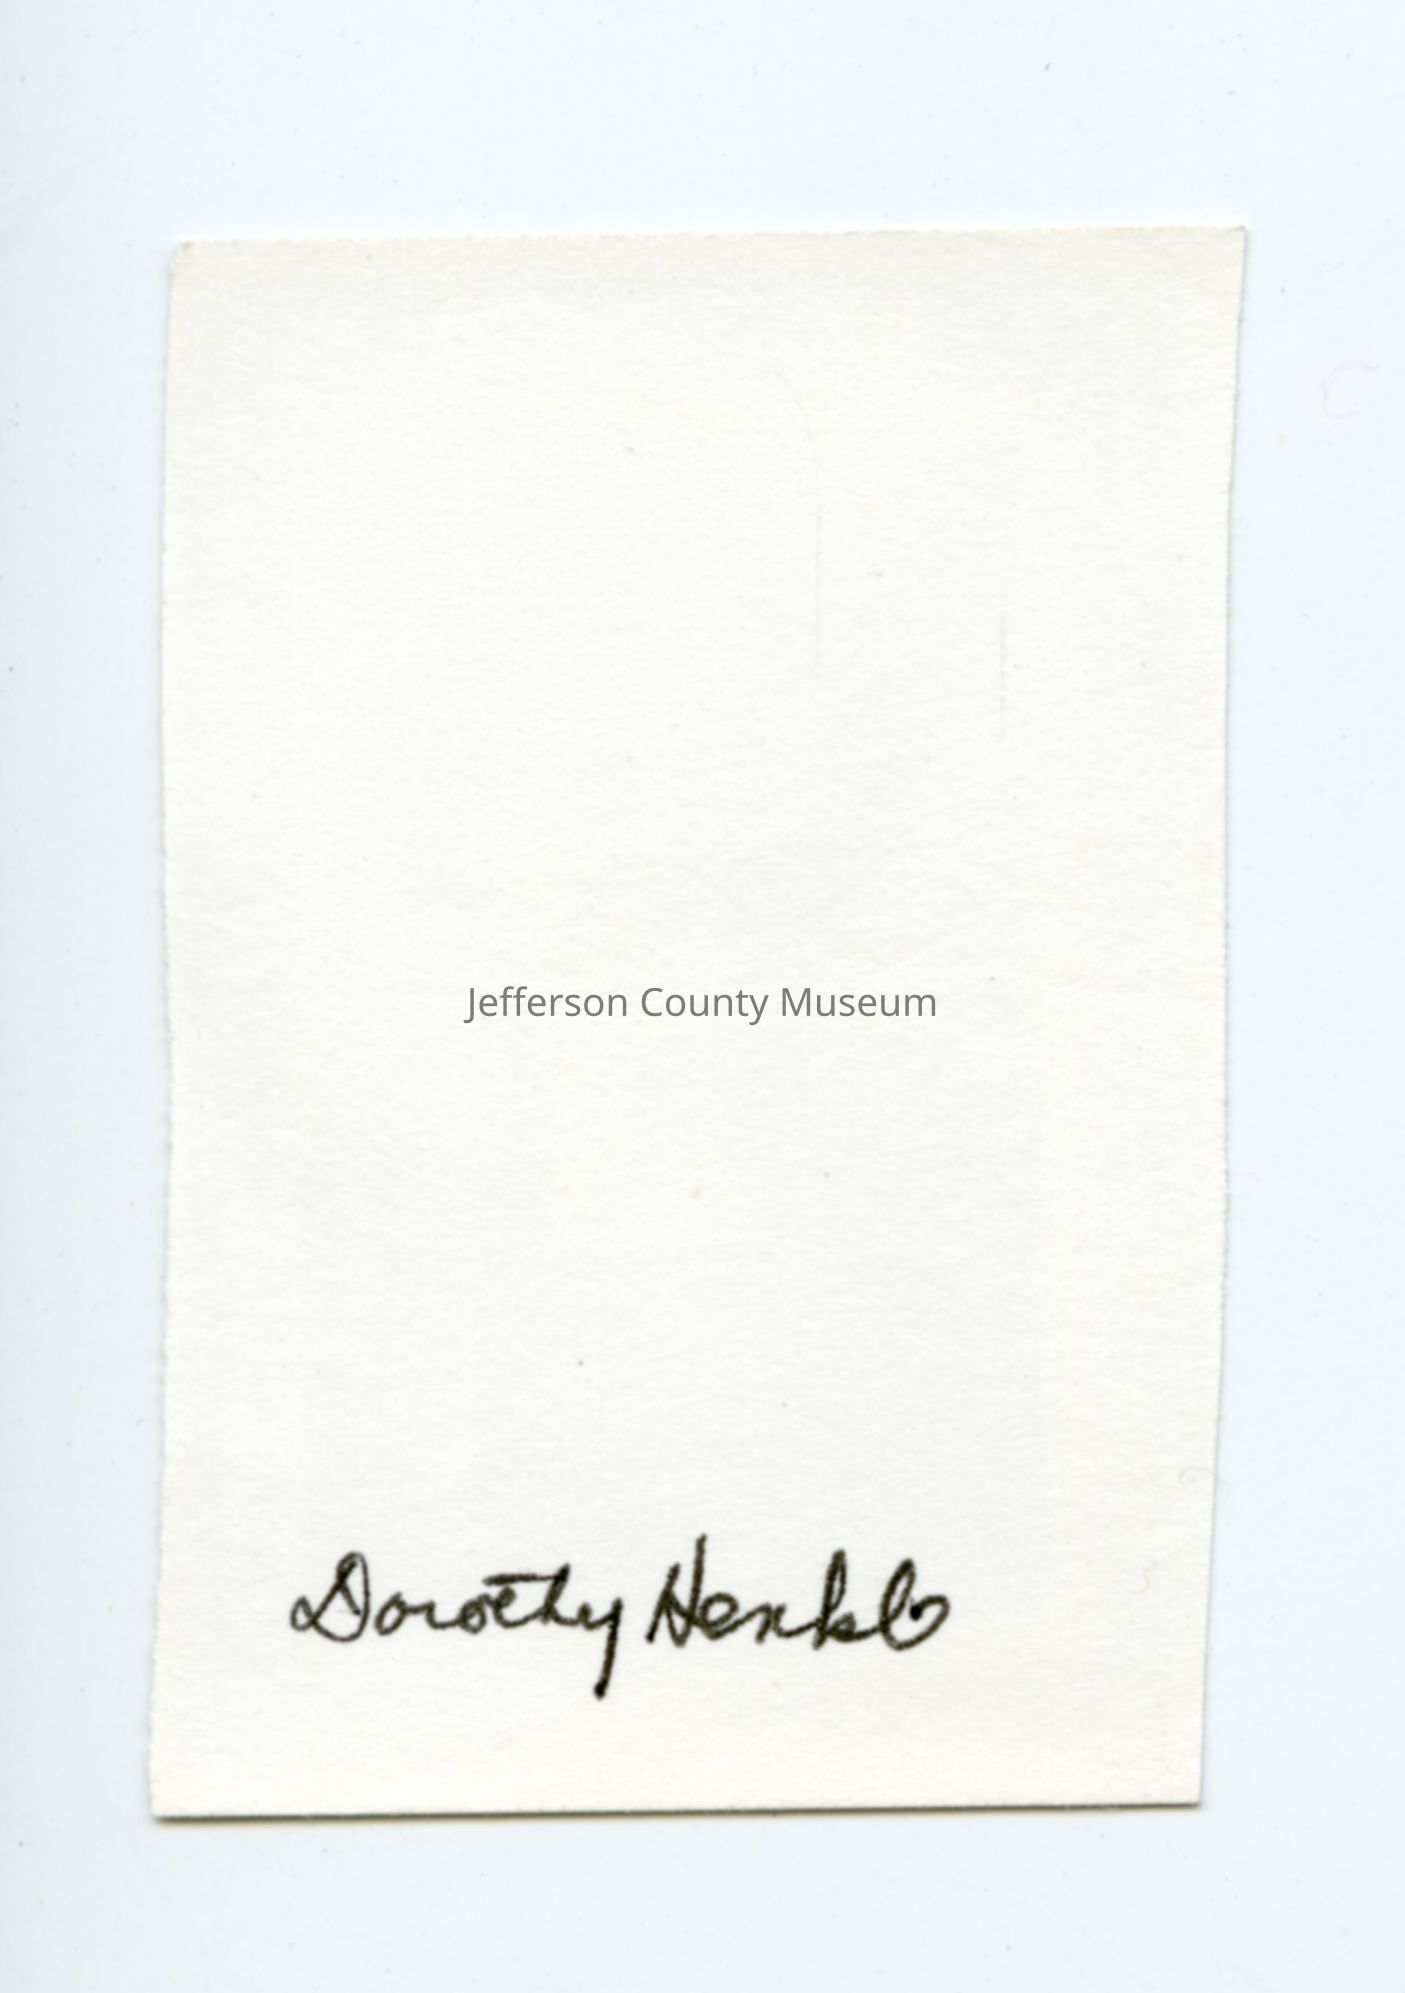 Jefferson County Museum
Dorothy Henkle